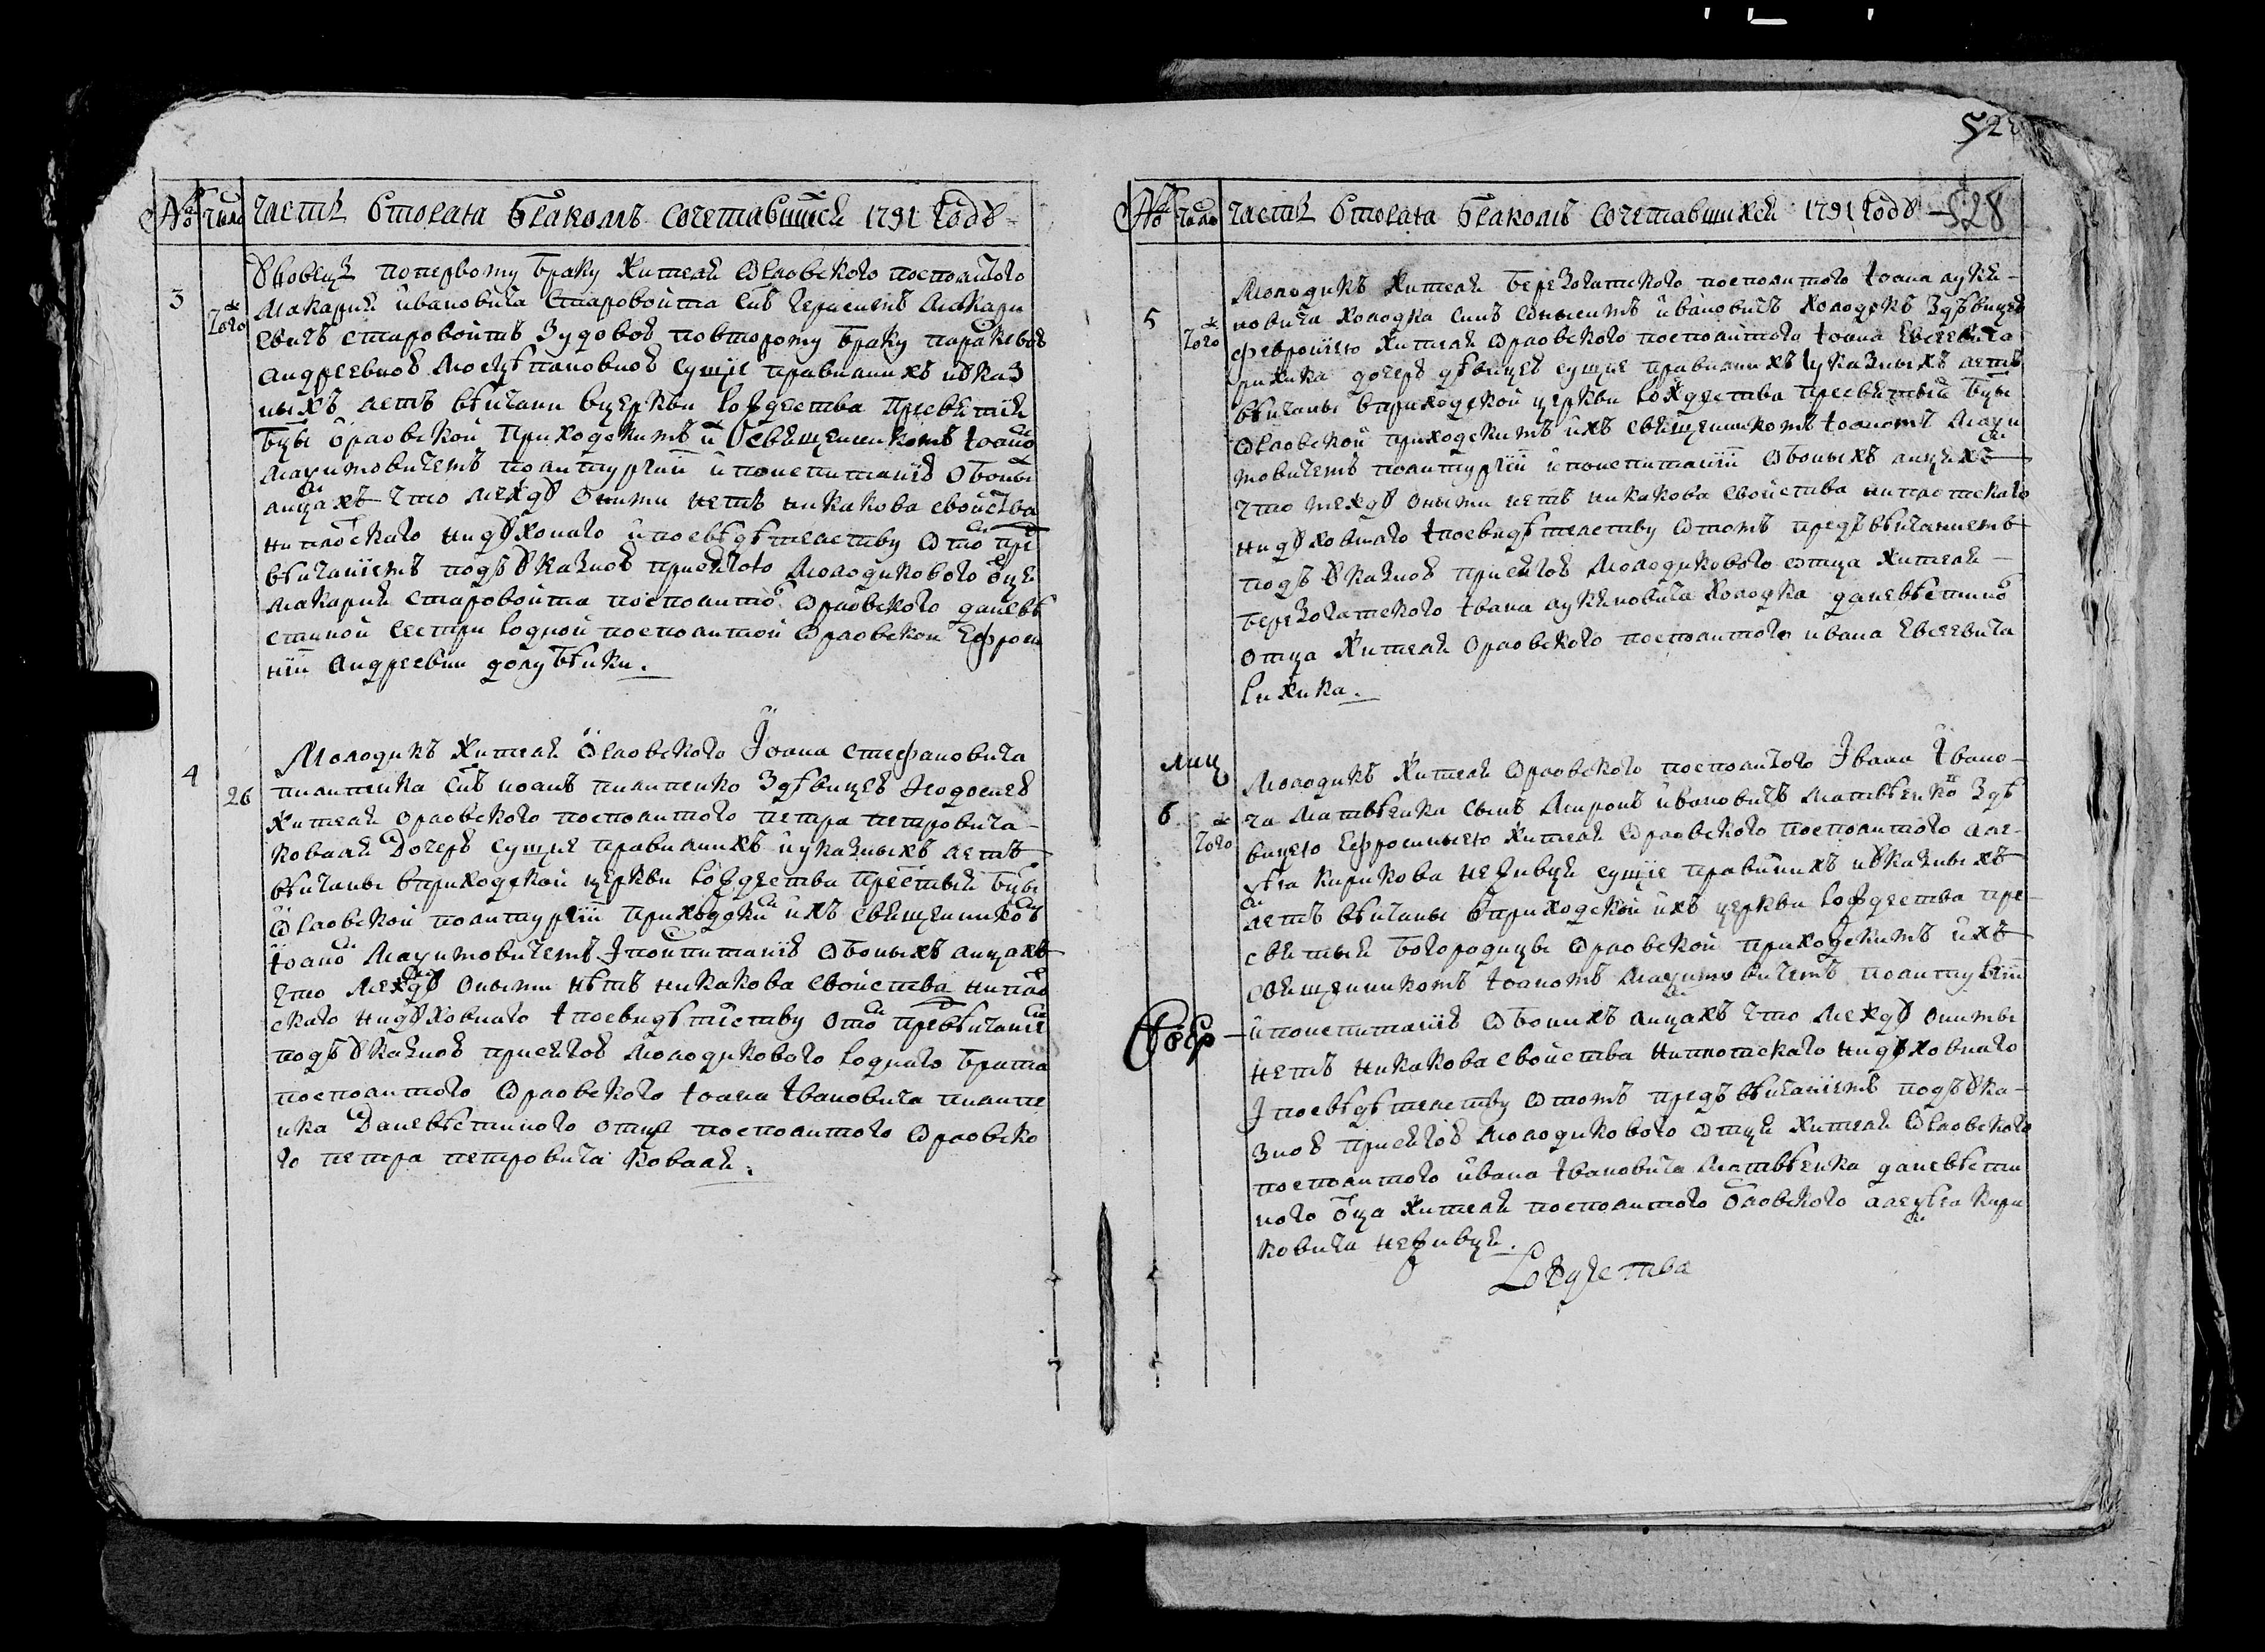 № число часть вторая бракомъ сочетавшися 1791 годѫ
3
тогож
Вдовецъ поперьвому браку житель Орловского посполитого
Макария ивановича Старовойта снъ герасимъ Макари
евичъ старовойтъ Зудовою повторому браку параскевою
андреевною сущие правилнихъ иуказ
нихъ летъ венчани вцеркви рождества Пресвятия
бцы орловской Приходскимъ Свещенникомъ Иоано
Маѯимовичемъ политургии ипоиспитанию обоихъ
лицахъ что между оними нетъ никакова свойства
ниплоскаго нидуховнаго ипосведѣтелству отомъ пред
венчаниемъ подъ указною присягою Молодикового отца
Макария старовойта посполитого Орловского даневѣ
стиной сестри родной посполитой Орловской Ефроси
нии андреевни
4
26
Молодикъ житель Орловского Иоана стефановича
пилипенка снъ иоанъ пилипенко Здѣвицею Феодосиею
жителя орловского посполитого петра петровича
коваля дочерь сущие правилнихъ иуказныхъ летъ
вѣнчаны вприходской церкви рождества Престыя бцы
Орловской политургии приходскимъ ихъ свещеникомъ
Иоано Маѯимовичемъ Ипоиспитанию обоныхъ лицахъ
что между оными нѣтъ никакова свойства нипло
скаго нидуховнаго Ипосвидѣтелству отомъ предвѣнчание
подъ указною присягою Молодикового родного брата
посполитого Орловского Иоана Ивановича пилипе
нка даневѣстиного отца посполитого Орловско
го петра петровича коваля.
528
№ число часть вторая бракомъ сочетавшихся 1791 годѫ 528
5
тогож
Молодикъ житель береЗоватского посполитого Иоана лукя
новича холодка синъ ивановичъ холодокъ Здѣвицею
феврониею жителя Орловского посполитого Иоана Евсеевича
рижика дочерь дѣвицею сущие правилнихъ иуказныхъ летъ
вѣнчаны вприходской церкви рождества пресвятыя бцы
Орловской приходскимъ ихъ свещенникомъ Иоаномъ Маѯи
мовичемъ политургии ипоиспитании обоныхъ лицяхъ
что между оными нетъ никакова свойства ниплотскаго
нидуховнаго Ипосвидѣтелству отомъ предъ вѣнчаниемъ
подъ указною присягою Молодикового отца жителя
береЗоватского Ивана лукяновича холодка даневѣстино
отца жителя Орловского посполитого ивана Евсеевича
рижика.
6
тогож
Молодикъ житель Орловского посполитого Ивана Ивано
ча Матвѣенка сынъ Миронъ ивановичъ Матвѣенко Здѣ
вицею Ефросиниею жителя Орловского посполитого але
ѯѣя кирикова неживця сущие правилнихъ иуказныхъ
летъ вѣнчаны вприходской ихъ церкви рождества пре
святыя богородицы Орловской приходскимъ ихъ
свещенникомъ Иоаномъ Маѯимовичемъ политургии
ипоиспитанию обоихъ лицахъ что между онимы
нетъ никакова свойства ниплотскаго нидуховнаго
Ипосвѣдѣтелству отомъ предъ вѣнчаниемъ подъ ука
зною присягою Молодикового отця жителя Орловского
посполитого ивана Ивановича Матвѣенка даневѣсти
ного отца жителя посполитого Орловского алеѯѣя кири
ковича неживця.
Рождества